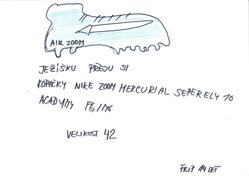 AIR ZOOM
JEŽÍŠKU PŘEJU SI
KOPAČKY NIKE ZOOM MERCURIAL SEPERELY 10
ACADYMY FG/MG
VELIKOST 42
FILIP 14 LET